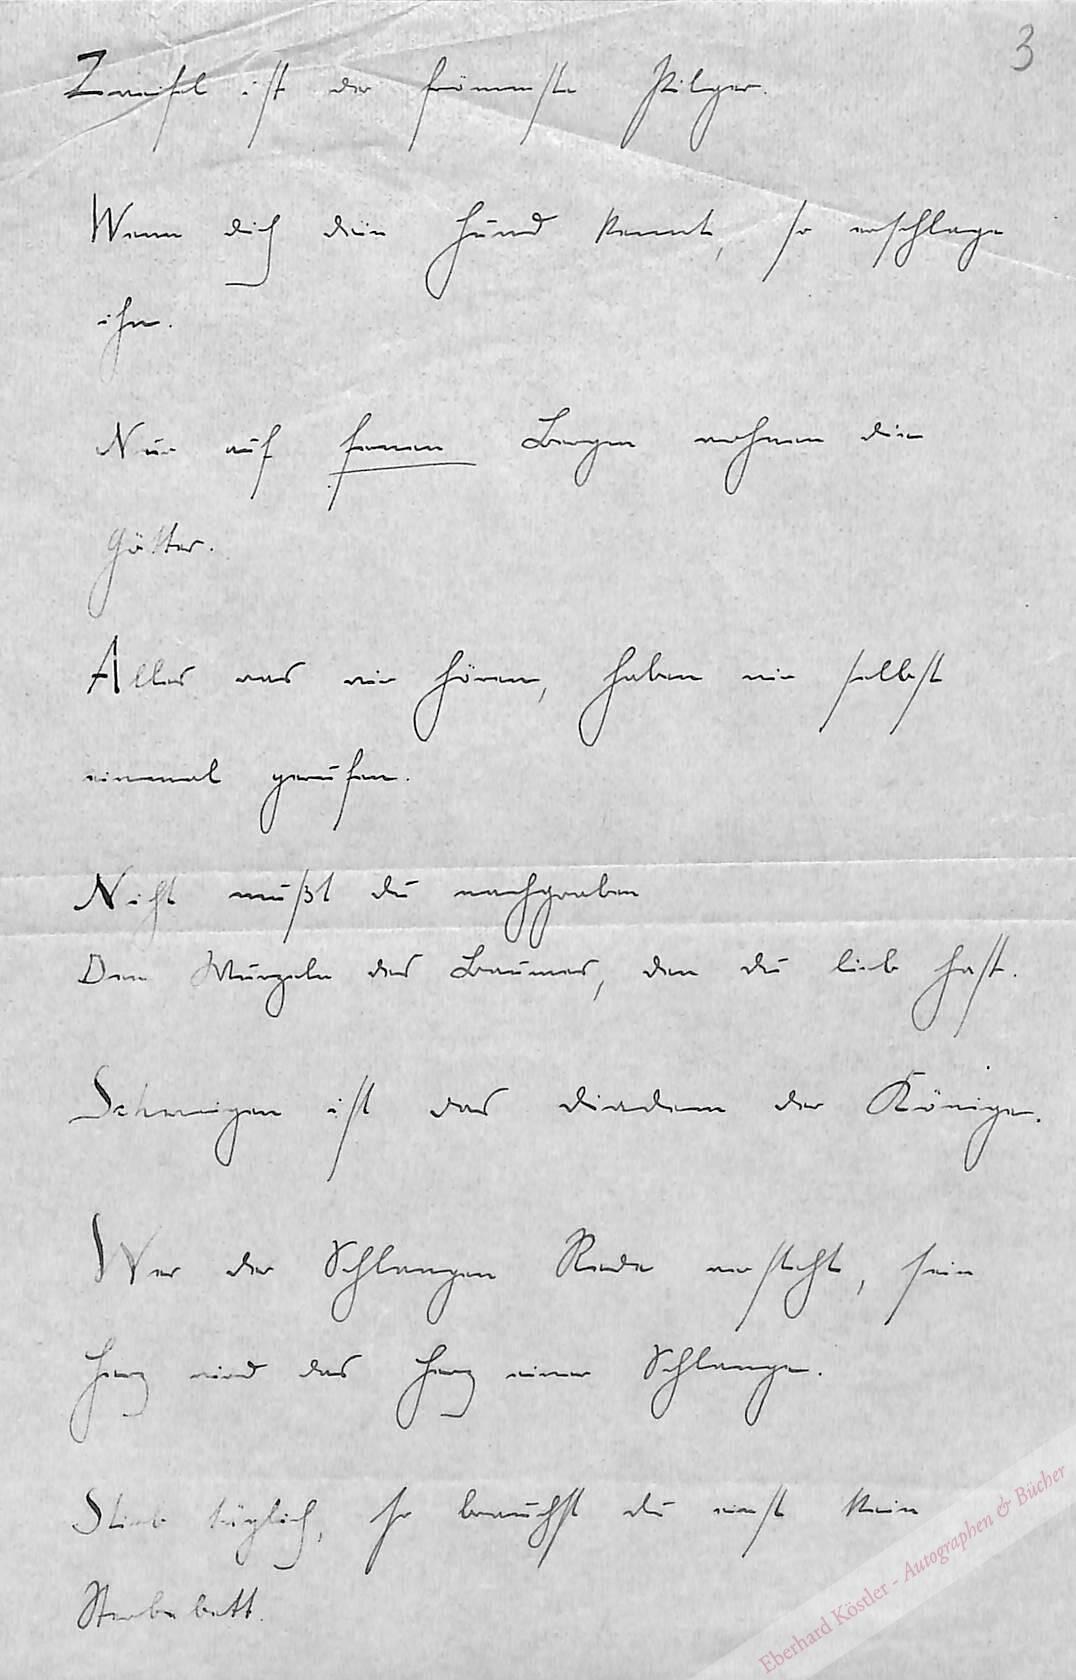 3
Zweifel ist der frömmste Pilger.
Wenn dich dein Hund kennt, so erschlage
ihn.
Nur auf fernen Bergen wohnen die
Götter.
Alles was wir hören, haben wir selbst
einmal gerufen.
Nicht mußt du nachgraben
Den Wurzeln des Baumes, den du lieb hast.
Schweigen ist das Diadem der Könige.
Wer der Schlangen Rede versteht, sein
Herz wird das Herz einer Schlange.
Stirb täglich, so brauchst du einst kein
Sterbebett.
Eberhard Köstler - Autographen & Bücher